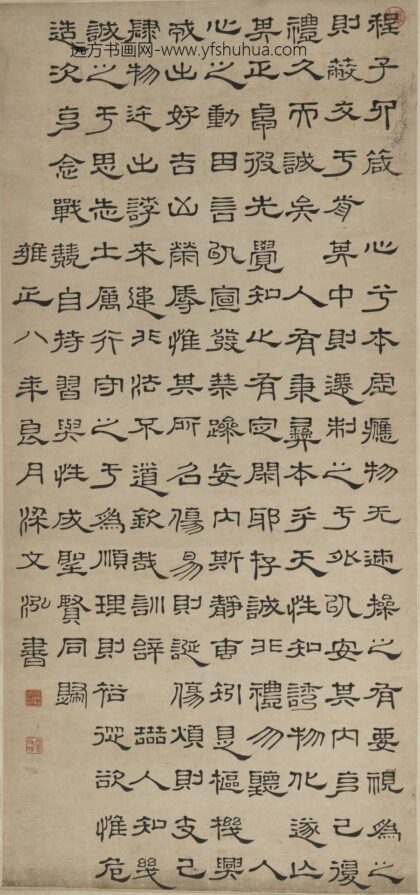 远方书画网-www.yfshuhua.com
程子四箴 心兮本虛應物无迹操之有要視為之
則蔽交于前其中則遷制之于外以安其內克己復
禮久而誠矣 人有秉彝本乎天性知誘物化遂亡
其正卓彼先覺知止有定閑邪存誠非禮勿聽 人
心之動因言以宣發禁躁妄內斯靜專矧是樞機興
戎出好吉凶榮辱惟其所召傷易則誕傷煩則支己
肆物迕出誖來違非法不道欽哉訓辭 喆人知幾
誠之于思志士厲行守之于為順理則裕從欲惟危
造次克念戰兢自持習與性成聖賢同歸
雍正八年良月梁文泓書